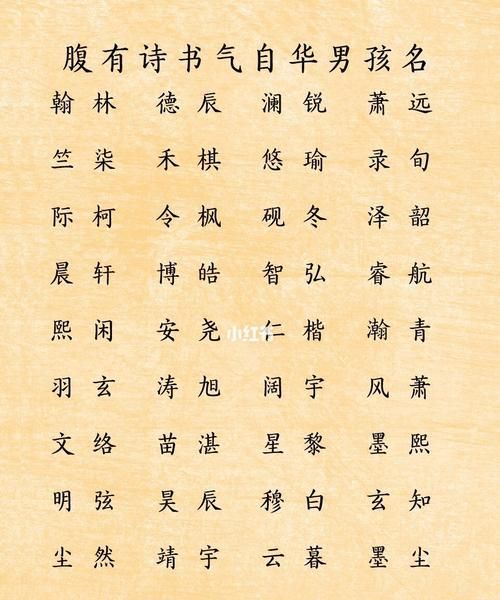 腹有诗书气自华男孩名
翰林 德辰 澜锐 萧远
竺柒 禾棋 悠瑜 录旬
际柯 令枫 砚冬 泽韶
晨轩 博皓 智弘 睿航
熙闲 安尧 仁楷 瀚青
小红书
羽玄 涛旭 阔宇 风萧
文络 苗湛 星黎 墨熙
明弦 昊辰 穆白 玄知
尘然 靖宇 云暮 墨尘